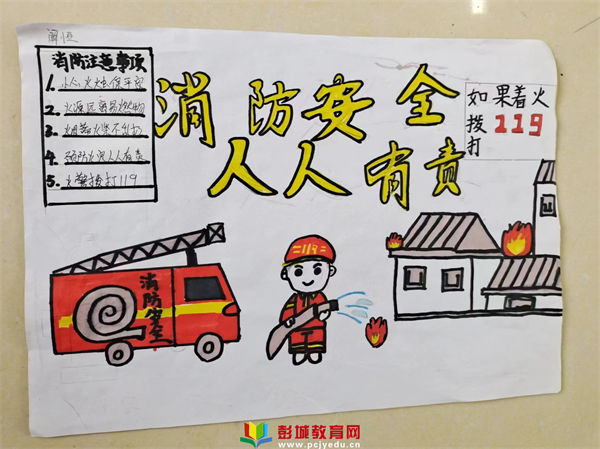 消防注意事项
1. 小心火烛保平安
2. 火源远离易燃物
3. 烟蒂火柴不乱扔
4. 预防火灾人人有责
5. 火警拨打119
消防安全
人人有责
如果着火
拨119
打
119
消防安全
彭城教育网
www.pcjyedu.cn